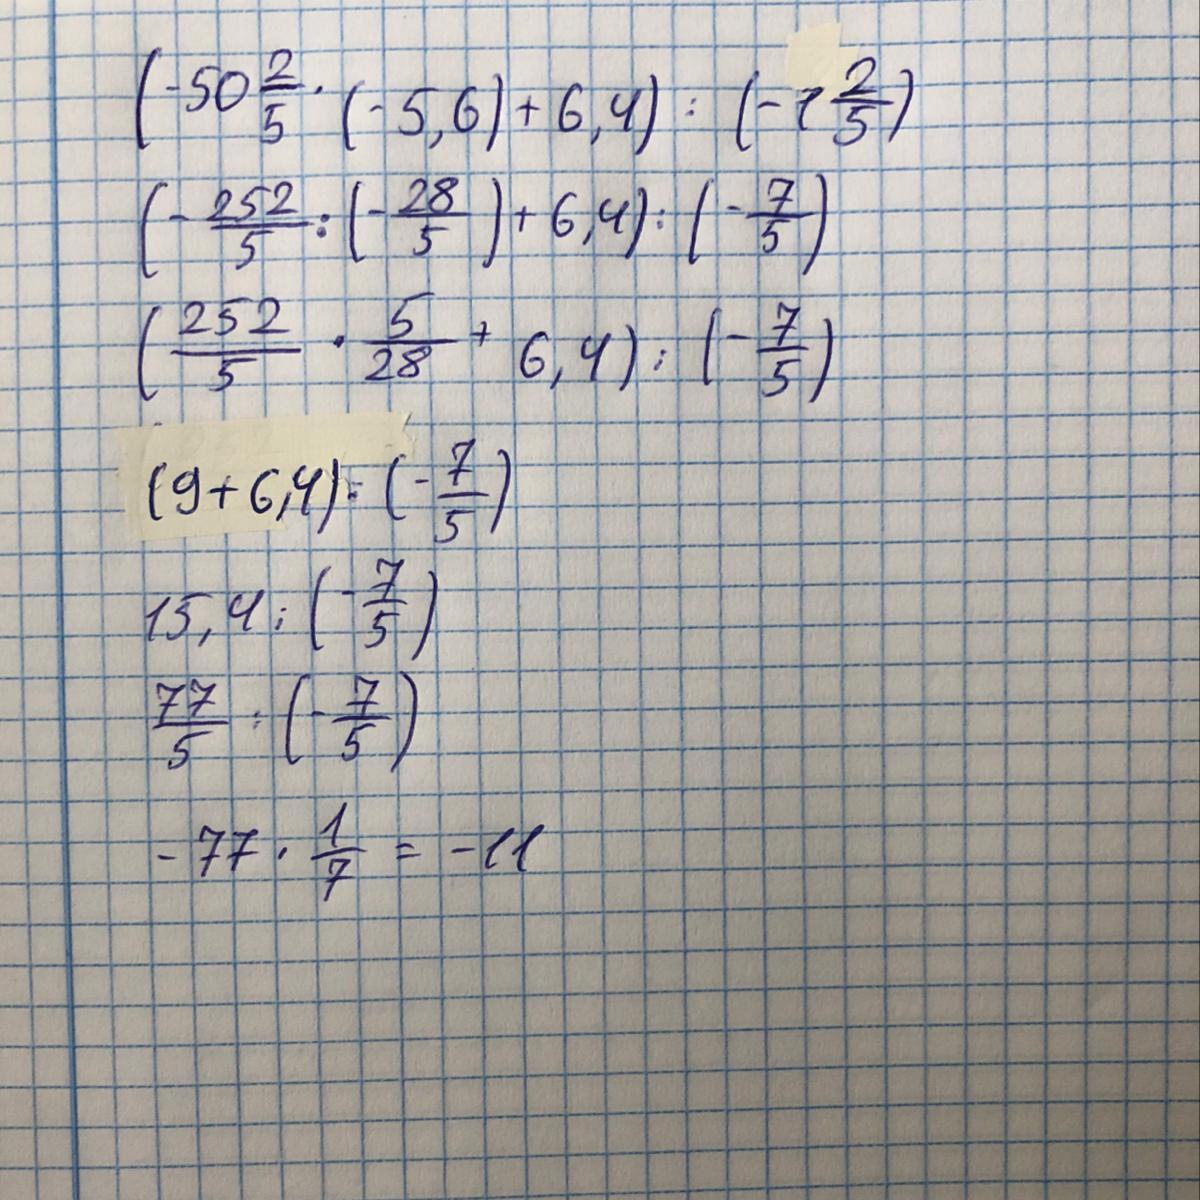 (-50 2/5 · (-5,6) + 6,4) : (-1 2/5)
(-252/5 : (-28/5) + 6,4) : (-7/5)
(252/5 · 5/28 + 6,4) : (-7/5)
(9+6,4) : (-7/5)
15,4 : (-7/5)
77/5 : (-7/5)
-77 · 1/7 = -11